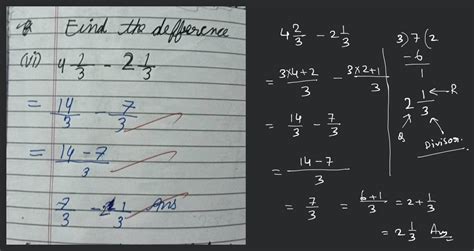 Find the defference
(vi) 4 2/3 - 2 1/3
= 14/3 - 7/3
= 14-7/3
7/3 - 2 1/3 Ans
4 2/3 - 2 1/3
= 3×4+2/3 - 3×2+1/3
= 14/3 - 7/3
= 14-7/3
= 7/3 = 6+1/3 = 2+1/3
= 2 1/3 Ans
3)7(2
-6
1
2 1/3
R
Q
Divisor.